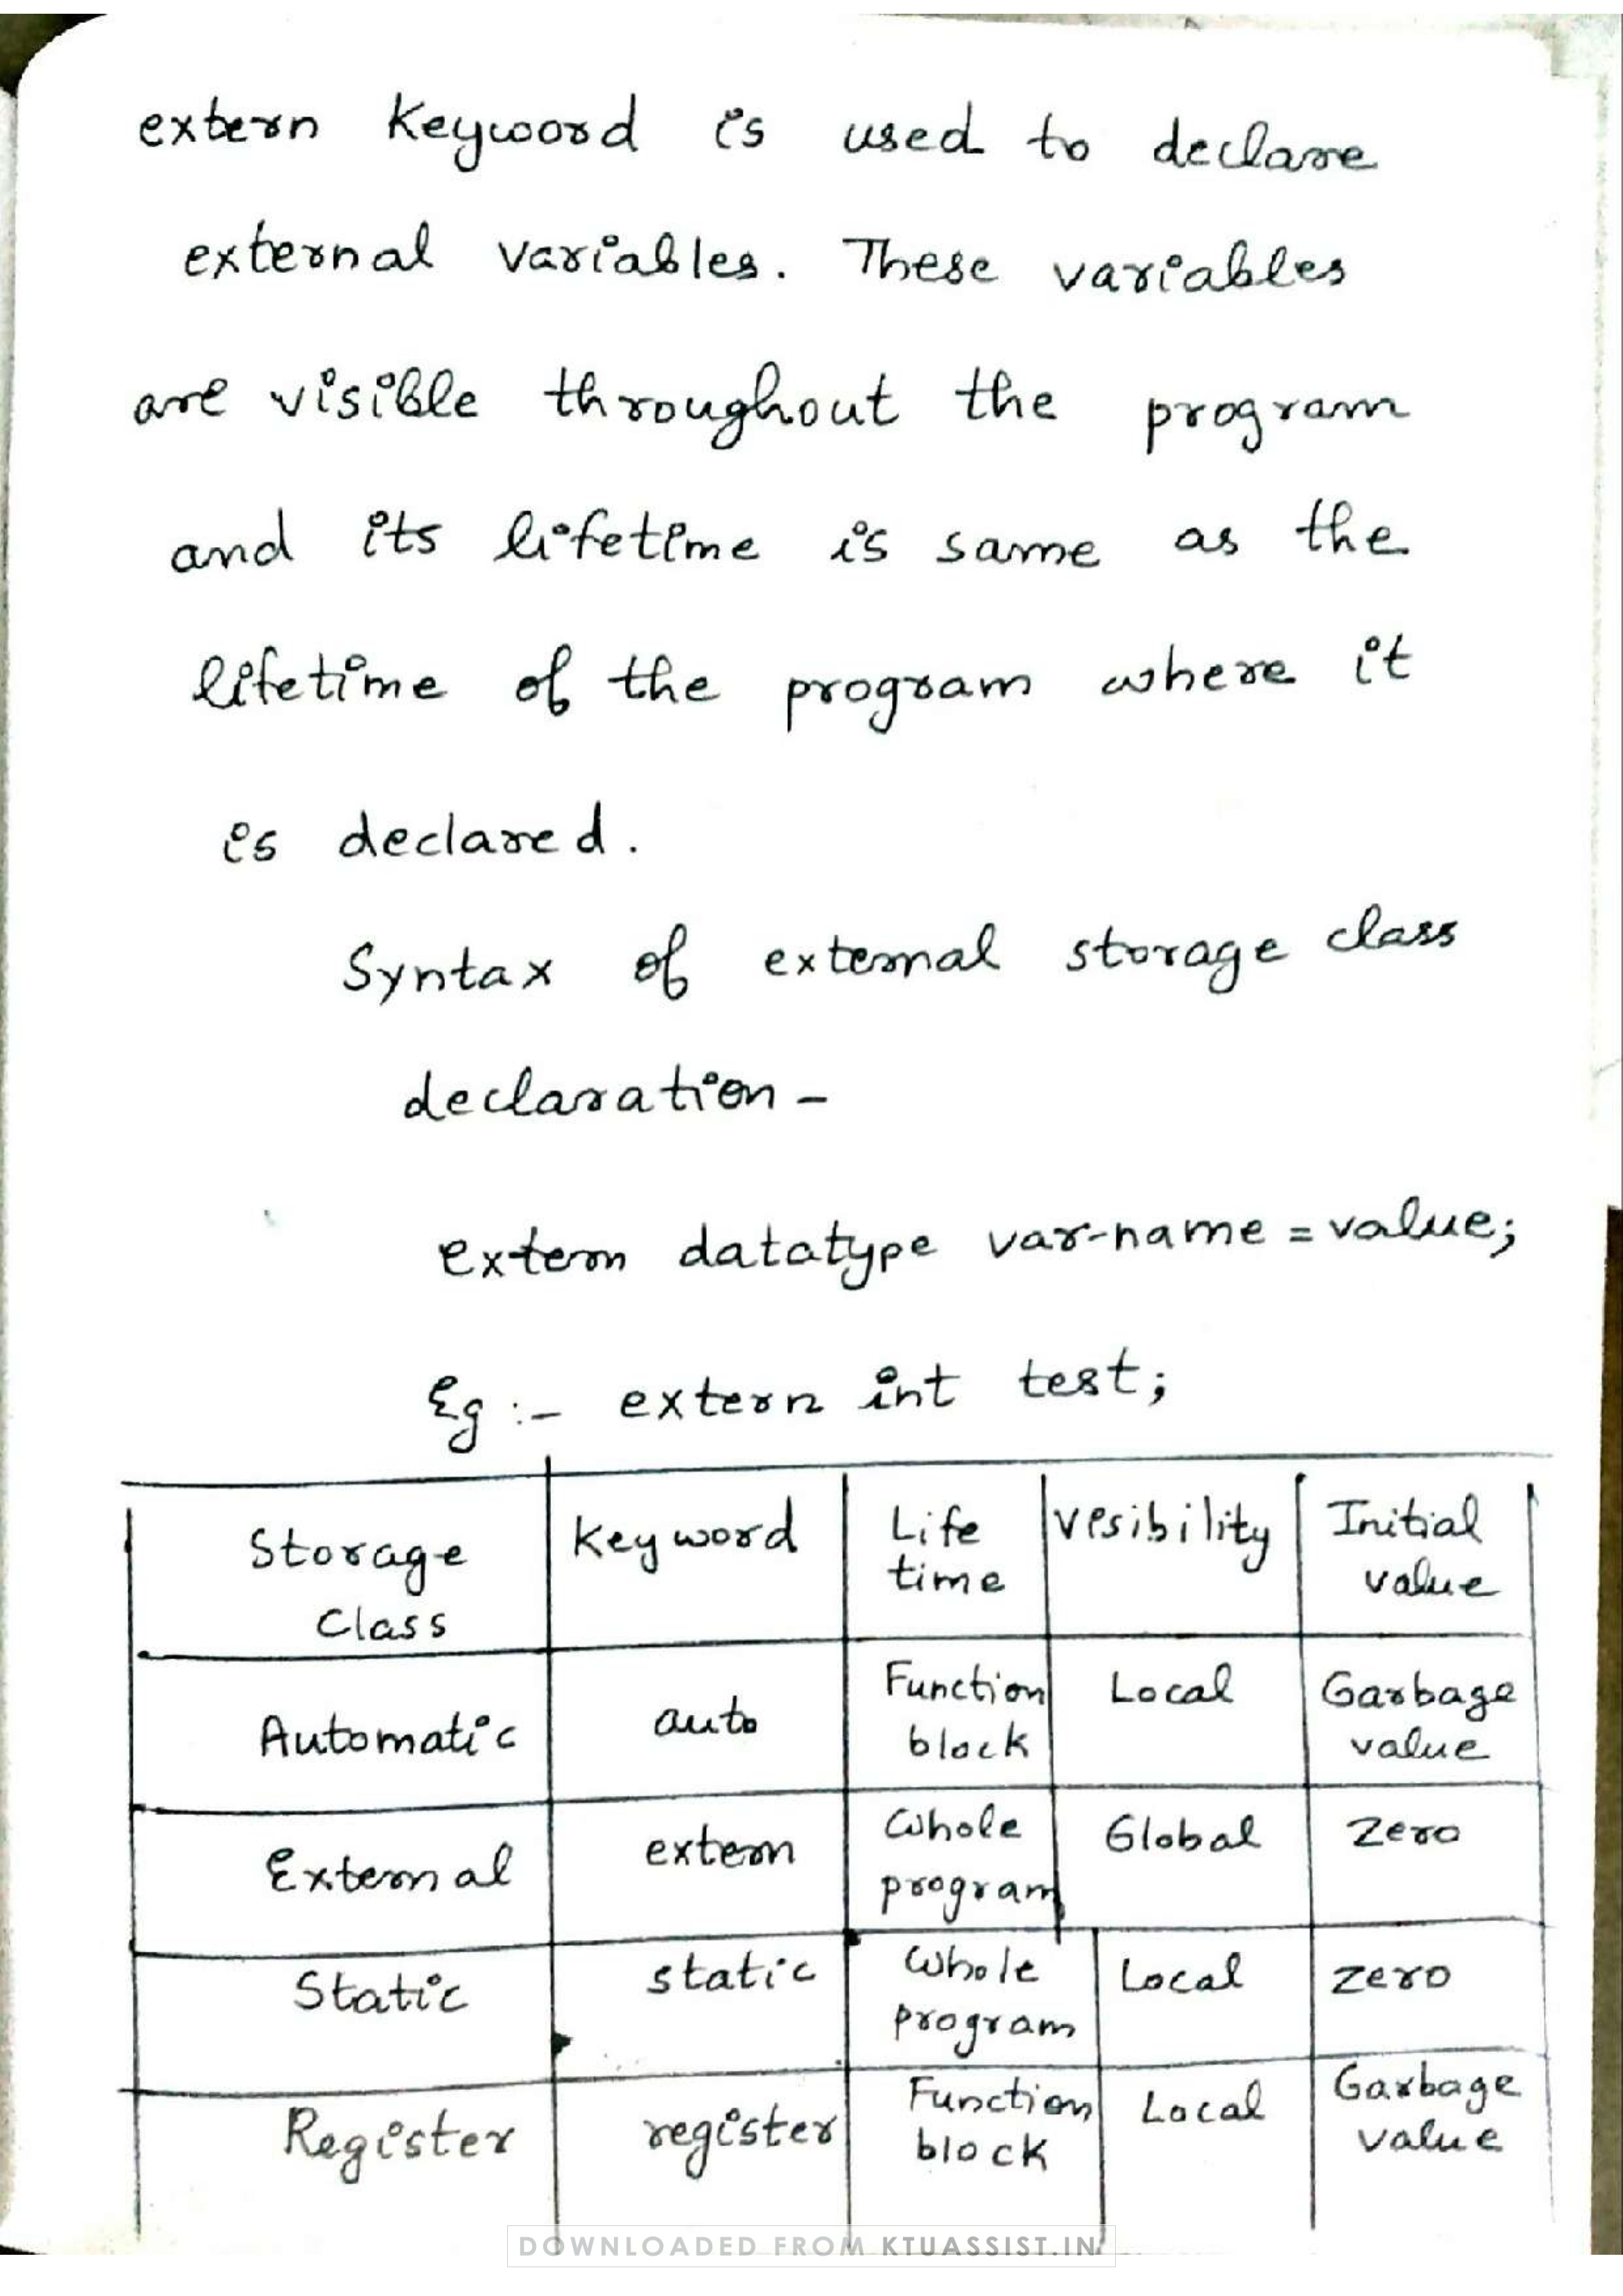 extern keyword is used to declare
external variables. These variables
are visible throughout the program
and its lifetime is same as the
lifetime of the program where it
is declared.
Syntax of external storage class
declaration -
extern datatype var-name = value;
Eg :- extern int test;
Storage Class | keyword | Life time | Visibility | Initial value
Automatic | auto | Function block | Local | Garbage value
External | extern | Whole program | Global | Zero
Static | static | Whole program | Local | Zero
Register | register | Function block | Local | Garbage value
DOWNLOADED FROM KTUASSIST.IN